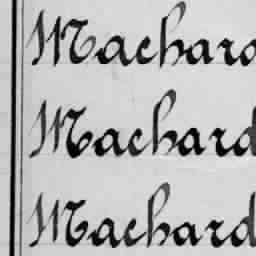 Machard
Machard
Machard